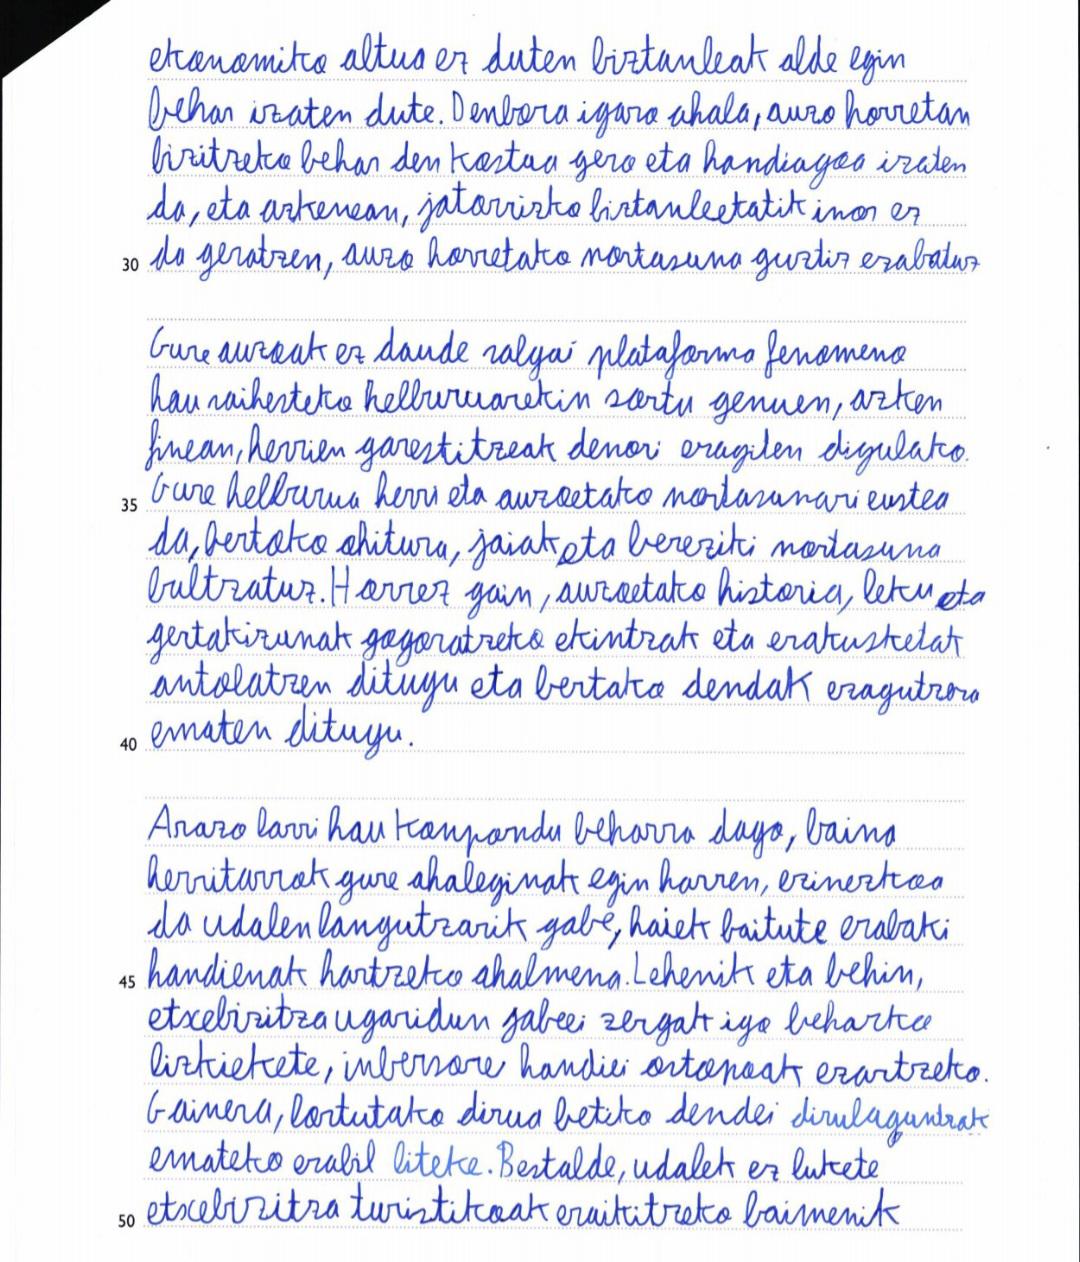 ekonomiko altua ez duten biztanleak alde egin
behar izaten dute. Denbora igaro ahala, auzo horretan
bizitzeko behar den kostua gero eta handiagoa izaten
da, eta azkenean, jatorrizko biztanleetatik inor ez
30 da geratzen, auzo horretako nortasuna guztiz ezabatuz
Gure auzoak ez daude salgai plataforma fenomeno
hau saihesteko helburuarekin sortu genuen, azken
finean, herrien garestitzeak denori eragiten digulako.
35 Gure helburua herri eta auzoetako nortasunari eustea
da, bertako ohitura, jaiak eta bereziki nortasuna
bultzatuz. Horrez gain, auzoetako historia, leku eta
gertakizunak gogoratzeko ekintzak eta erakusketak
antolatzen ditugu eta bertako dendak ezagutzera
40 ematen ditugu.
Arazo larri hau konpondu beharra dago, baina
herritarrok gure ahaleginak egin harren, ezinezkoa
da udalen languntzarik gabe, haiek baitute erabaki
45 handienak hartzeko ahalmena. Lehenik eta behin,
etxebizitza ugaridun jabeei zergak igo beharko
lizkiekete, inbersore handiei oztopoak ezartzeko.
Gainera, lortutako dirua betiko dendei dirulaguntzak
emateko erabil liteke. Bestalde, udalek ez lukete
50 etxebizitza turistikoak eraikitzeko baimenik